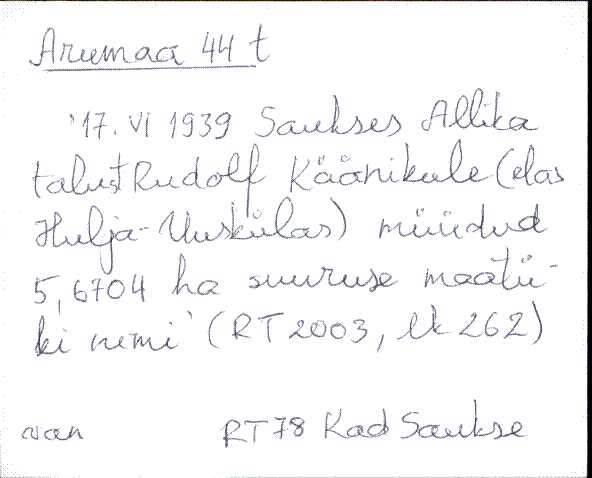 Arumaa 44 t
'17. VI 1939 Saukses Allika
talust Rudolf Käänikule (elas
Hulja-Uuskülas) müüdud
5,6704 ha suuruse maatü-
ki nimi' (RT 2003, lk 262)
van RT 78 Kad Saukse